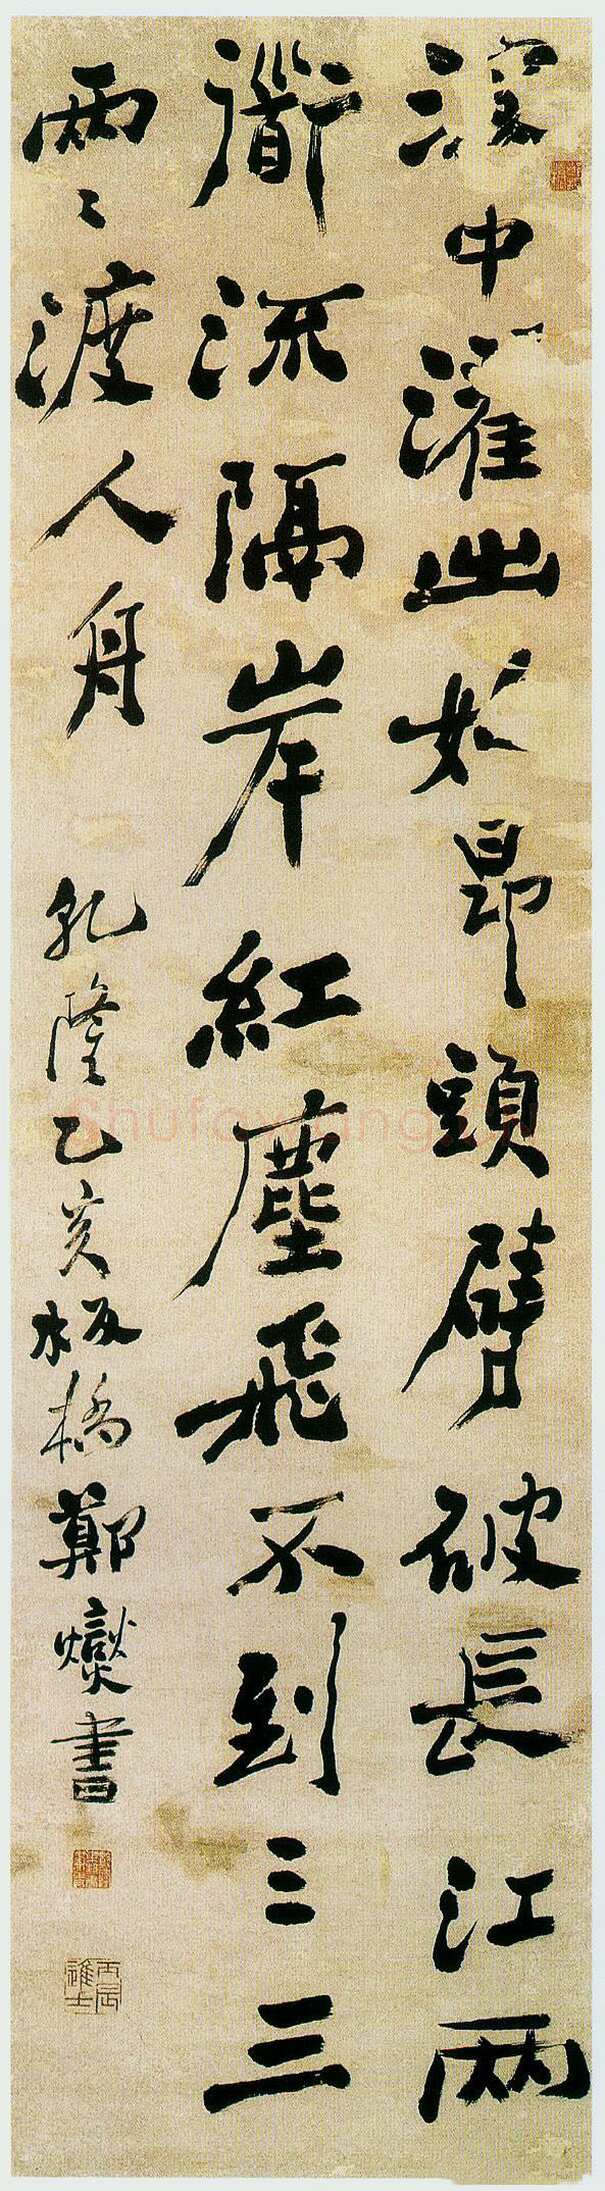 中濯出如昂頭劈破長江兩
衟流隔岸紅塵飛不到三三
兩〻渡人舟
乾隆乙亥板橋鄭燮書
丙辰進士